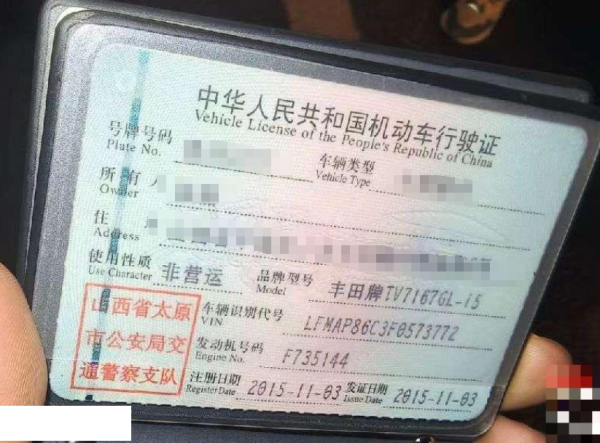 中华人民共和国机动车行驶证
Vehicle License of the People's Republic of China
号牌号码
Plate No.
车辆类型
Vehicle Type
所有人
Owner
住
Address
使用性质 非营运
Use Character
品牌型号 丰田牌TV7167GL-i5
Model
车辆识别代号 LFMAP86C3F0573772
VIN
发动机号码 F735144
Engine No.
注册日期 2015-11-03
Register Date
发证日期 2015-11-03
Issue Date
山西省太原
市公安局交
通警察支队